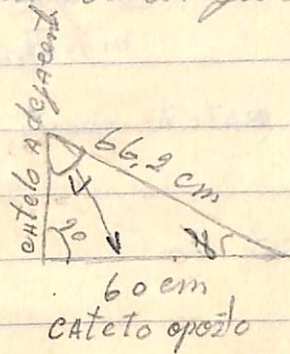 CATETO ADJACENTE
66,2 cm
90
60 cm
CATETO OPOSTO